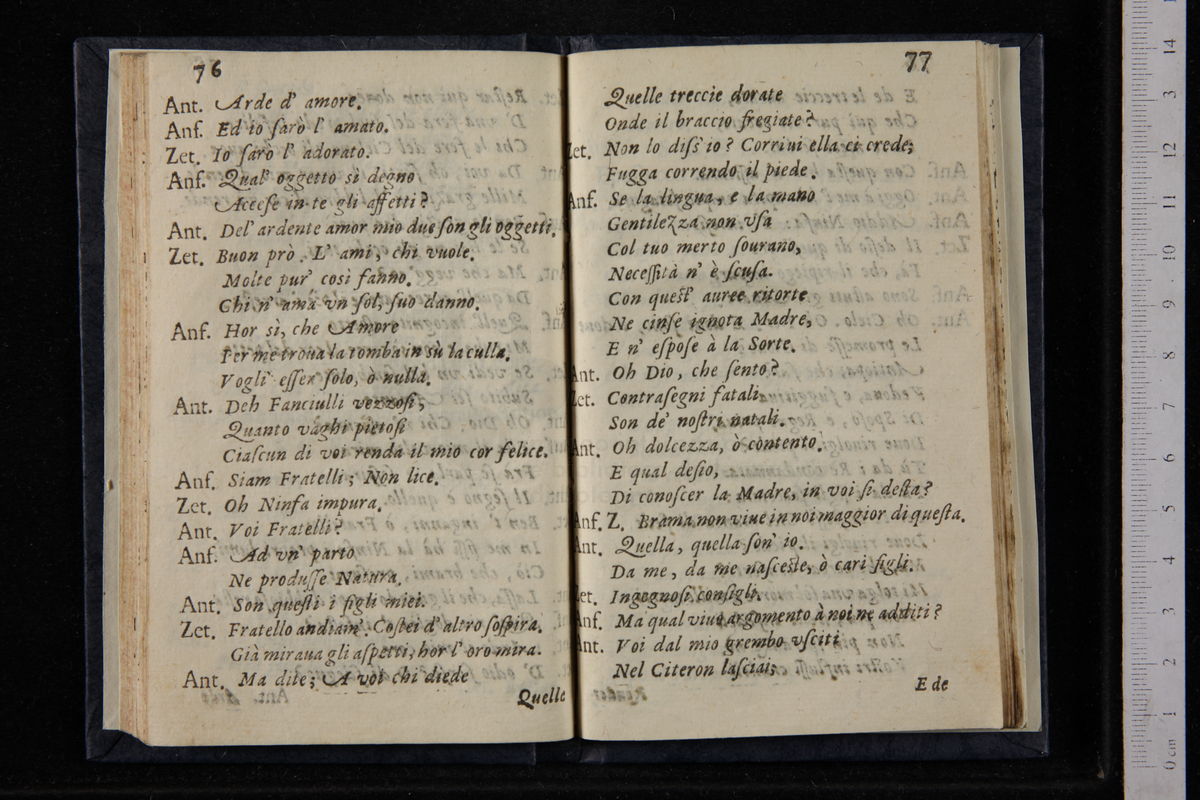 76
Ant. Arde d' amore.
Anf. Ed io ſarò l' amato.
Zet. Io ſarò l' adorato.
Anf. Qual' oggetto sì degno
Acceſe in te gli affetti?
Ant. Del' ardente amor mio due ſon gli oggetti.
Zet. Buon prò. L' ami, chi vuole.
Molte pur' così fanno.
Chi n' ama vn ſol, ſuo danno.
Anf. Hor sì, che Amore
Per me troua la tomba in sù la culla.
Vogli' eſſer ſolo, ò nulla.
Ant. Deh Fanciulli vezzoſi;
Quanto vaghi pietoſi
Ciaſcun di voi renda il mio cor felice.
Anf. Siam Fratelli; Non lice.
Zet. Oh Ninfa impura.
Ant. Voi Fratelli?
Anf. Ad vn' parto
Ne produſſe Natura.
Ant. Son queſti i figli miei.
Zet. Fratello andiam'. Coſtei d' altro ſoſpira.
Già miraua gli aſpetti; hor l' oro mira.
Ant. Ma dite; A voi chi diede
Quelle
77
Quelle treccie dorate
Onde il braccio fregiate?
Zet. Non lo diſs' io? Corriui ella ci crede;
Fugga correndo il piede.
Anf. Se la lingua, e la mano
Gentilezza non vſa
Col tuo merto ſourano,
Neceſſità n' è ſcuſa.
Con queſt' auree ritorte
Ne cinſe ignota Madre,
E n' eſpoſe à la Sorte.
Ant. Oh Dio, che ſento?
Zet. Contraſegni fatali
Son de' noſtri natali.
Ant. Oh dolcezza, ò contento.
E qual deſio,
Di conoſcer la Madre, in voi ſi deſta?
Anf. Z. Brama non viue in noi maggior di queſta.
Ant. Quella, quella ſon' io.
Da me, da me naſceſte, ò cari figli.
Zet. Ingegnoſi conſigli.
Anf. Ma qual viuo argomento à noi ne additi?
Ant. Voi dal mio grembo vſciti
Nel Citeron laſciai;
E de